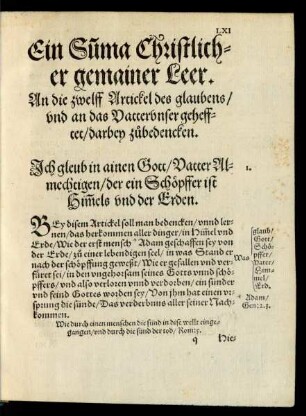 LXI
Ein Sūma Christlich-
er gemainer Leer.
An die zwelff Artickel des glaubens/
vnd an das Vatterunser gehefft-
tet/darbey zůbedencken.
Ich gleub in ainen Gott/Vatter Al-
mechtigen/der ein Schöpffer ist
Him̄els vnd der Erden.
1.
BEy disem Artickel soll man bedencken/vnnd ler-
nen/das herkommen aller dinger/in Him̄el vnd
Erde/Wie der erst mensch Adam geschaffen sey von
der Erde/zů einer lebendigen seel/in was Stand er
nach der schöpffung gewest/Wie er gefallen vnd ver-
füret sey/in den vngehorsam seines Gotts vnnd schö-
pffers/vnd also verloren vnnd verdorben/ein sünder
vnd feind Gottes worden sey/Von jhm hat einen vr-
sprung die sünde/Das verderbnus aller seiner Nach-
kommen.
Was
glaub/
Gott/
Schö-
pffer/
Vater/
Him̄-
mel/
Erd.
Adam/
Gen:2.3.
Wie durch einen menschen die sünd in dise wellt einge-
gangen/vnd durch die sünd der tod/Rom:5.
q Hie-